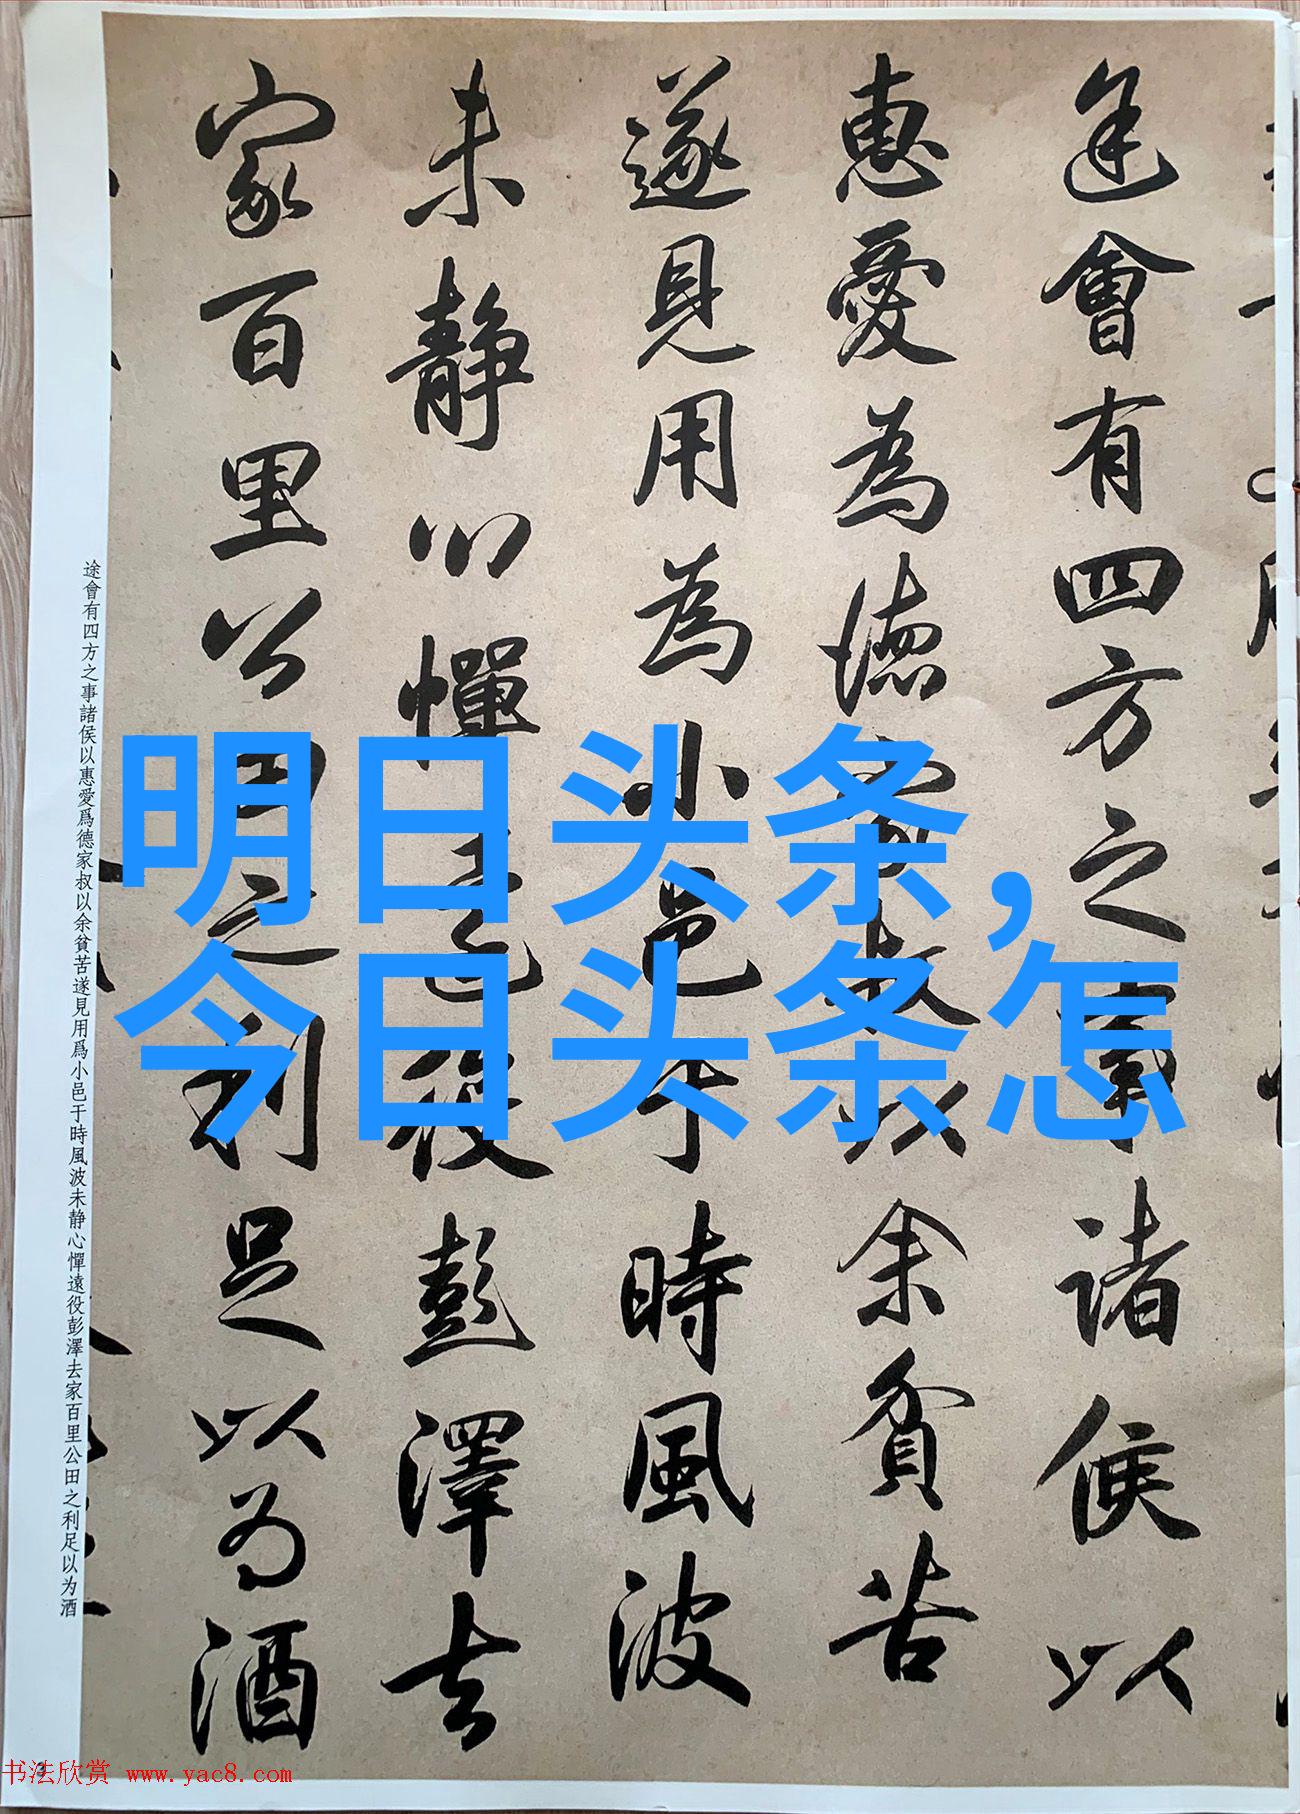 途會有四方之事諸侯以
惠愛為德家叔以余貧苦
遂見用為小邑于時風波
未静心憚遠役彭澤去
家百里公田之利足以为酒
途會有四方之事諸侯以惠愛爲德家叔以余貧苦遂見用爲小邑于時風波未静心憚遠役彭澤去家百里公田之利足以为酒
明日头条，
今日头条怎
书法欣赏 www.yac8.com